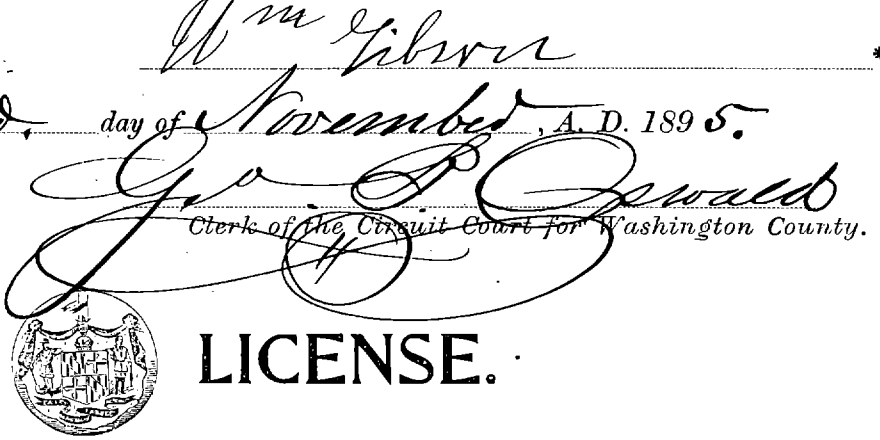 Wm Gibson
day of November, A. D. 1895.
Geo. B. Oswald
Clerk of the Circuit Court for Washington County.
LICENSE.